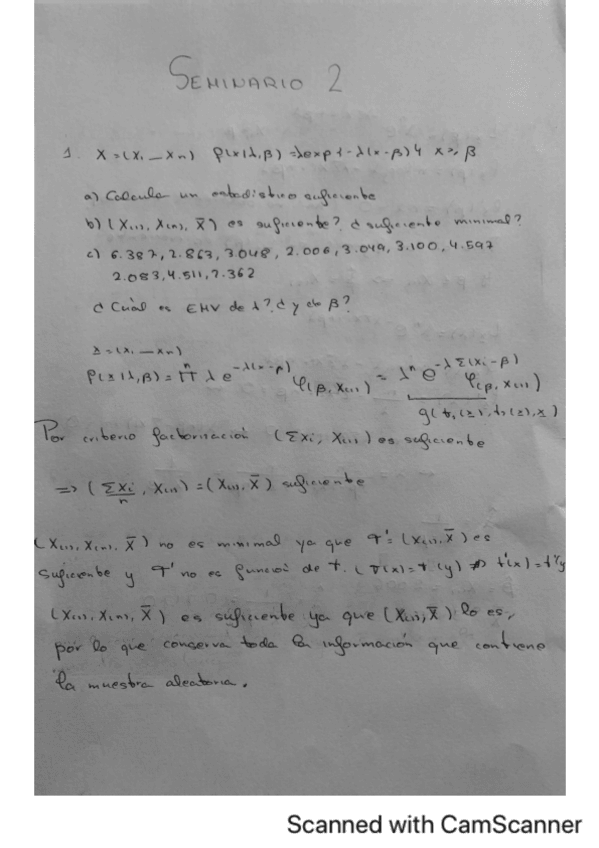 SEMINARIO 2
1. X=(X₁ — Xn) P(x|λ,β) = λexp{-λ(x-β)} x≥β
a) Calcula un estadistico suficiente
b) (X(1), X(n), X̄) es suficiente? ¿ suficiente minimal?
c) 6.387, 2.863, 3.048, 2.006, 3.049, 3.100, 4.597
2.083, 4.511, 7.362
¿ Cuál es EMV de λ? ¿ y de β?
x=(x₁ — xn)
P(x|λ,β) = ∏ⁿ λ e^{-λ(x-β)} φ(β, X(1)) = λⁿ e^{-λ Σ(xi-β)} φ(β, X(1))
g(t₁(x), t₂(x), λ)
Por criterio factorización (ΣXi, X(1)) es suficiente
=> (ΣXi/n, X(1)) = (X(1), X̄) suficiente
(X(1), X(n), X̄) no es minimal ya que T' = (X(1), X̄) es
suficiente y T' no es función de t.
(X(1), X(n), X̄) es suficiente ya que (X(1), X̄) lo es,
por lo que conserva toda la información que contiene
la muestra aleatoria.
Scanned with CamScanner